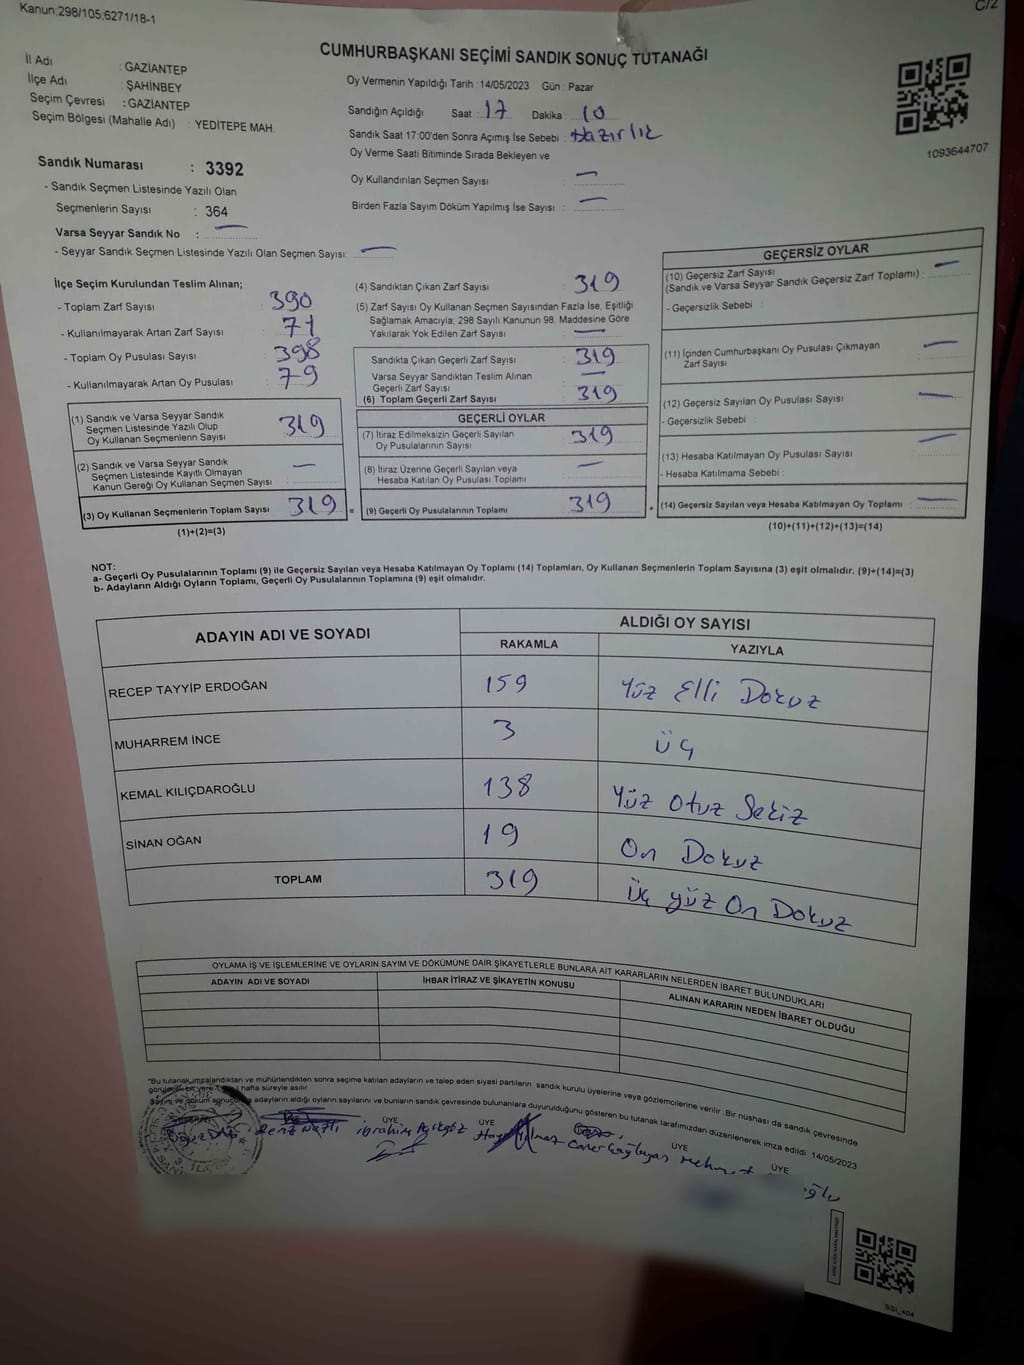 Kanun:298/105;6271/18-1
C/2
CUMHURBAŞKANI SEÇİMİ SANDIK SONUÇ TUTANAĞI
İl Adı : GAZİANTEP
İlçe Adı : ŞAHİNBEY
Seçim Çevresi : GAZİANTEP
Seçim Bölgesi (Mahalle Adı) : YEDİTEPE MAH.
Oy Vermenin Yapıldığı Tarih : 14/05/2023 Gün : Pazar
Sandığın Açıldığı Saat : 17 Dakika : 10
Sandık Saat 17:00'den Sonra Açımış İse Sebebi : Hazırlık
Oy Verme Saati Bitiminde Sırada Bekleyen ve
Oy Kullandırılan Seçmen Sayısı : —
Birden Fazla Sayım Döküm Yapılmış İse Sayısı : —
1093644707
Sandık Numarası : 3392
- Sandık Seçmen Listesinde Yazılı Olan
Seçmenlerin Sayısı : 364
Varsa Seyyar Sandık No : —
- Seyyar Sandık Seçmen Listesinde Yazılı Olan Seçmen Sayısı: —
İlçe Seçim Kurulundan Teslim Alınan;
- Toplam Zarf Sayısı : 390
- Kullanılmayarak Artan Zarf Sayısı : 71
- Toplam Oy Pusulası Sayısı : 398
- Kullanılmayarak Artan Oy Pusulası : 79
(1) Sandık ve Varsa Seyyar Sandık
Seçmen Listesinde Yazılı Olup
Oy Kullanan Seçmenlerin Sayısı : 319
(2) Sandık ve Varsa Seyyar Sandık
Seçmen Listesinde Kayıtlı Olmayan
Kanun Gereği Oy Kullanan Seçmen Sayısı : —
(3) Oy Kullanan Seçmenlerin Toplam Sayısı 319 =
(1)+(2)=(3)
(4) Sandıktan Çıkan Zarf Sayısı : 319
(5) Zarf Sayısı Oy Kullanan Seçmen Sayısından Fazla İse, Eşitliği
Sağlamak Amacıyla, 298 Sayılı Kanunun 98. Maddesine Göre
Yakılarak Yok Edilen Zarf Sayısı : —
Sandıkta Çıkan Geçerli Zarf Sayısı : 319
Varsa Seyyar Sandıktan Teslim Alınan
Geçerli Zarf Sayısı : —
(6) Toplam Geçerli Zarf Sayısı : 319
GEÇERLİ OYLAR
(7) İtiraz Edilmeksizin Geçerli Sayılan
Oy Pusulalarının Sayısı : 319
(8) İtiraz Üzerine Geçerli Sayılan veya
Hesaba Katılan Oy Pusulası Toplamı : —
(9) Geçerli Oy Pusulalarının Toplamı : 319 +
GEÇERSİZ OYLAR
(10) Geçersiz Zarf Sayısı
(Sandık ve Varsa Seyyar Sandık Geçersiz Zarf Toplamı) : —
- Geçersizlik Sebebi :
(11) İçinden Cumhurbaşkanı Oy Pusulası Çıkmayan
Zarf Sayısı : —
(12) Geçersiz Sayılan Oy Pusulası Sayısı : —
- Geçersizlik Sebebi :
(13) Hesaba Katılmayan Oy Pusulası Sayısı : —
- Hesaba Katılmama Sebebi :
(14) Geçersiz Sayılan veya Hesaba Katılmayan Oy Toplamı : —
(10)+(11)+(12)+(13)=(14)
NOT:
a- Geçerli Oy Pusulalarının Toplamı (9) ile Geçersiz Sayılan veya Hesaba Katılmayan Oy Toplamı (14) Toplamları, Oy Kullanan Seçmenlerin Toplam Sayısına (3) eşit olmalıdır. (9)+(14)=(3)
b- Adayların Aldığı Oyların Toplamı, Geçerli Oy Pusulalarının Toplamına (9) eşit olmalıdır.
ADAYIN ADI VE SOYADI
ALDIĞI OY SAYISI
RAKAMLA YAZIYLA
RECEP TAYYİP ERDOĞAN 159 Yüz Elli Dokuz
MUHARREM İNCE 3 Üç
KEMAL KILIÇDAROĞLU 138 Yüz Otuz Sekiz
SİNAN OĞAN 19 On Dokuz
TOPLAM 319 Üç yüz On Dokuz
OYLAMA İŞ VE İŞLEMLERİNE VE OYLARIN SAYIM VE DÖKÜMÜNE DAİR ŞİKAYETLERLE BUNLARA AİT KARARLARIN NELERDEN İBARET BULUNDUKLARI
ADAYIN ADI VE SOYADI
İHBAR İTİRAZ VE ŞİKAYETİN KONUSU
ALINAN KARARIN NEDEN İBARET OLDUĞU
"Bu tutanak imzalandıktan ve mühürlendikten sonra seçime katılan adayların ve talep eden siyasi partilerin sandık kurulu üyelerine veya gözlemcilerine verilir. Bir nüshası da sandık çevresinde
görülecek bir yere hafta süreyle asılır.
Sayım ve döküm sonucunda adayların aldığı oyların sayılarını ve bunların sandık çevresinde bulunanlara duyurulduğunu gösteren bu tutanak tarafımızdan düzenlenerek imza edildi. 14/05/2023
ÜYE ÜYE ÜYE ÜYE
İbrahim Mehmet
SSI_404